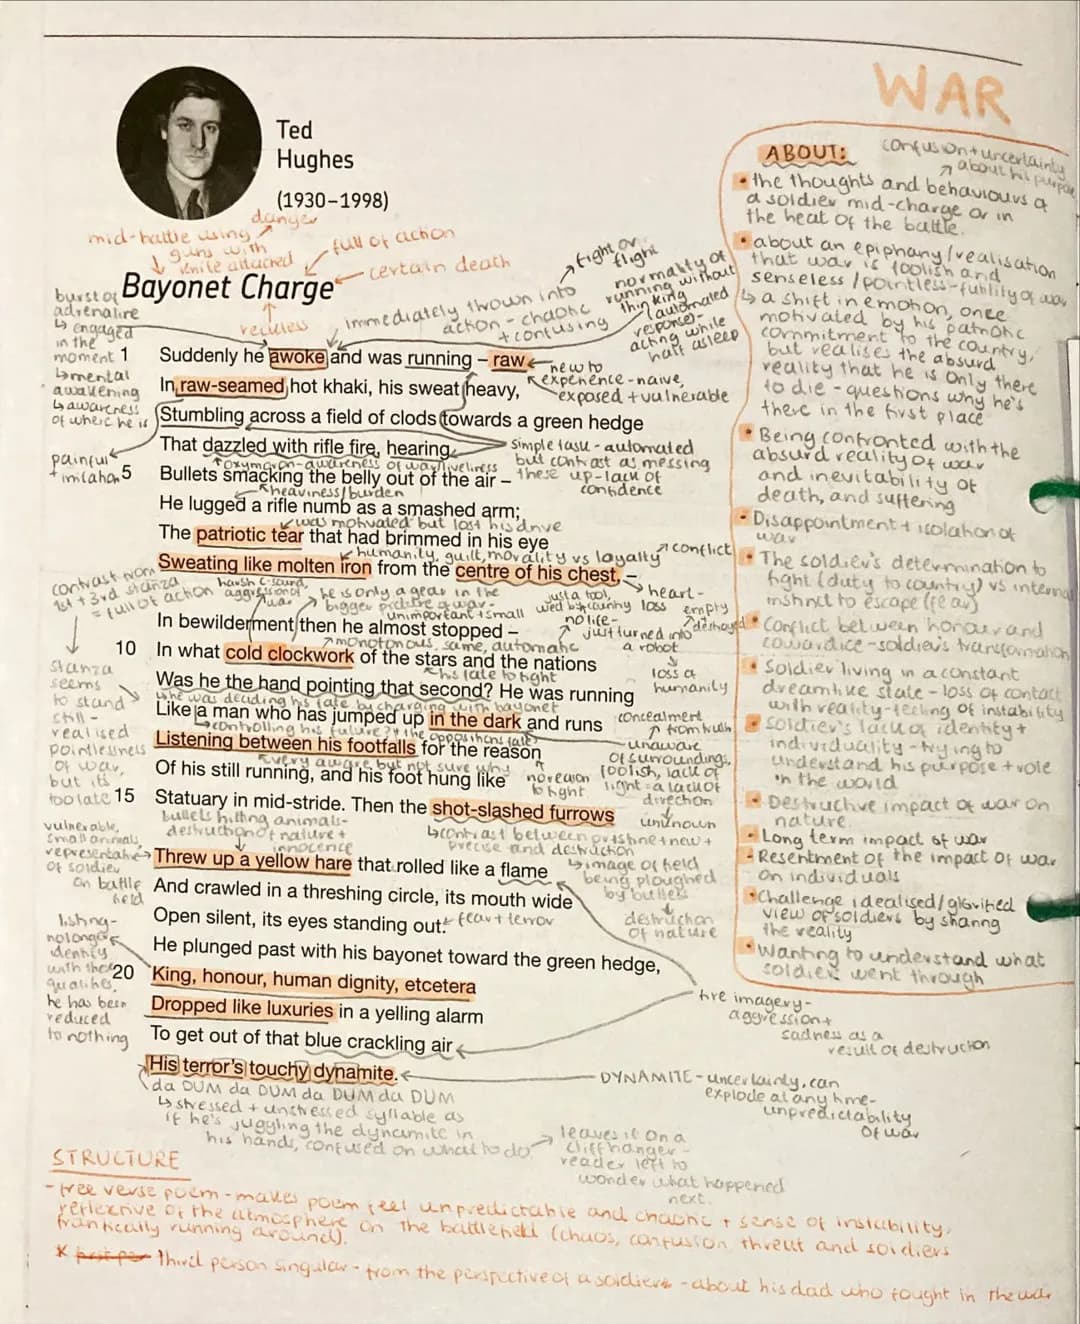 WAR
Ted
Hughes
(1930–1998)
danger
mid-battle using
guns with
knife attached
full of action
certain death
reckless
Bayonet Charge
burst of
adrenaline
↳ engaged
in the
moment
↳ mental
awakening
↳ awareness
of where he is
immediately thrown into
action - chaotic
+ confusing
fight or
flight
normality of
running without
thinking
(automated
response) -
acting while
half asleep
1 Suddenly he awoke and was running – raw
new to
experience - naive,
exposed + vulnerable
In raw-seamed hot khaki, his sweat heavy,
Stumbling across a field of clods towards a green hedge
That dazzled with rifle fire, hearing
simple task - automated
but contrast as messing
these up - lack of
confidence
painful
+ imitation
oxymoron - awareness of war/liveliness
5 Bullets smacking the belly out of the air –
heaviness/burden
He lugged a rifle numb as a smashed arm;
was motivated but lost his drive
The patriotic tear that had brimmed in his eye
humanity, guilt, morality vs loyalty
conflict
Sweating like molten iron from the centre of his chest, –
contrast from
1st + 3rd stanza
= full of action
harsh c-sound,
aggression of
war
he is only a gear in the
bigger picture of war -
unimportant + small
just a tool,
used by country
no life -
just turned into
a robot
heart -
loss
empty
destroyed
loss of
humanity
In bewilderment then he almost stopped –
monotonous, same, automatic
10 In what cold clockwork of the stars and the nations
his fate to fight
Was he the hand pointing that second? He was running
he was deciding his fate by charging with bayonet
Like a man who has jumped up in the dark and runs
controlling his future? / the oppositions fate
concealment
from truth
Listening between his footfalls for the reason
very aware but not sure why
unaware
of surroundings,
foolish, lack of
light = a lack of
direction
unknown
Of his still running, and his foot hung like
no reason
to fight
stanza
seems
to stand
still -
realised
pointlessness
of war,
but its
too late
15 Statuary in mid-stride. Then the shot-slashed furrows
bullets hitting animals -
destruction of nature +
innocence
contrast between pristine + new +
precise and destruction
image of field
being ploughed
by bullets
destruction
of nature
vulnerable,
small animals,
representative
of soldier
on battle
field
Threw up a yellow hare that rolled like a flame
And crawled in a threshing circle, its mouth wide
Open silent, its eyes standing out.
fear + terror
He plunged past with his bayonet toward the green hedge,
listing -
no longer
identify
with these
qualities.
he has been
reduced
to nothing
20 King, honour, human dignity, etcetera
Dropped like luxuries in a yelling alarm
To get out of that blue crackling air
fire imagery -
aggression +
sadness as a
result of destruction
His terror's touchy dynamite.
DYNAMITE - uncertainty, can
explode at any time -
unpredictability
of war
da DUM da DUM da DUM da DUM
↳ stressed + unstressed syllable as
if he's juggling the dynamite in
his hands, confused on what to do
leaves it on a
cliffhanger -
reader left to
wonder what happened
next.
ABOUT:
confusion + uncertainty
about his purpose
• the thoughts and behaviours of
a soldier mid-charge or in
the heat of the battle.
• about an epiphany/realisation
that war is foolish and
senseless/pointless - futility of war
↳ a shift in emotion, once
motivated by his patriotic
commitment to the country,
but realises the absurd
reality that he is only there
to die - questions why he's
there in the first place
• Being confronted with the
absurd reality of war
and inevitability of
death, and suffering
• Disappointment + isolation of
war
• The soldier's determination to
fight (duty to country) vs internal
instinct to escape (fear)
• Conflict between honour and
cowardice - soldier's transformation
• Soldier living in a constant
dreamlike state - loss of contact
with reality - feeling of instability
• Soldier's lack of identity +
individuality - trying to
understand his purpose + role
in the world
• Destructive impact of war on
nature
• Long term impact of war
• Resentment of the impact of war
on individuals
• Challenge idealised/glorified
view of soldiers by sharing
the reality
• Wanting to understand what
soldier went through
STRUCTURE
- free verse poem - makes poem feel unpredictable and chaotic + sense of instability,
reflective of the atmosphere on the battlefield (chaos, confusion, threat and soldiers
frantically running around).
* first per third person singular - from the perspective of a soldiers - about his dad who fought in the war